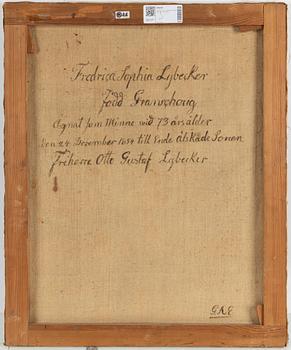 Fredrica Sophia Lybecker
född Granschoug
Ægnat som Minne wid 73 årsålder
den 24 December 1854 till Ende älskade Sonen
Friherre Otto Gustaf Lybecker
G.A.E